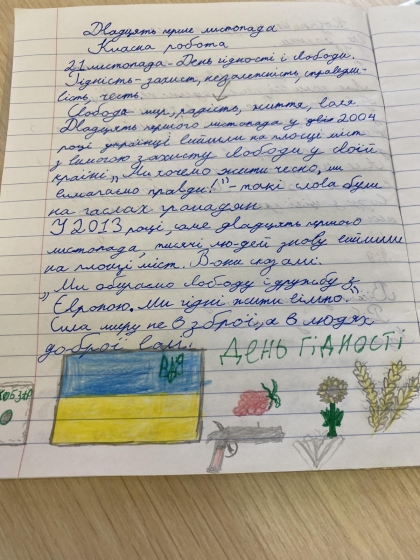 Двадцять перше листопада
Класна робота
21 листопада - День гідності і свободи.
Гідність - захист, незалежність, справедли-
вість, честь.
Свобода - мир, радість, життя, воля
Двадцять першого листопада у 2004
році українці вийшли на площі міст
з вимогою захисту свободи у своїй
країні „Ми хочемо жити чесно, ми
вимагаємо правди!" - такі слова були
на гаслах громадян
У 2013 році, саме двадцять першого
листопада, тисячі людей знову вийшли
на площі міст. Вони сказали:
„Ми обираємо свободу і дружбу з
Європою. Ми гідні жити вільно."
Сила миру не в зброї, а в людях
доброї волі.
ДЕНЬ ГІДНОСТІ
КОБЗАР